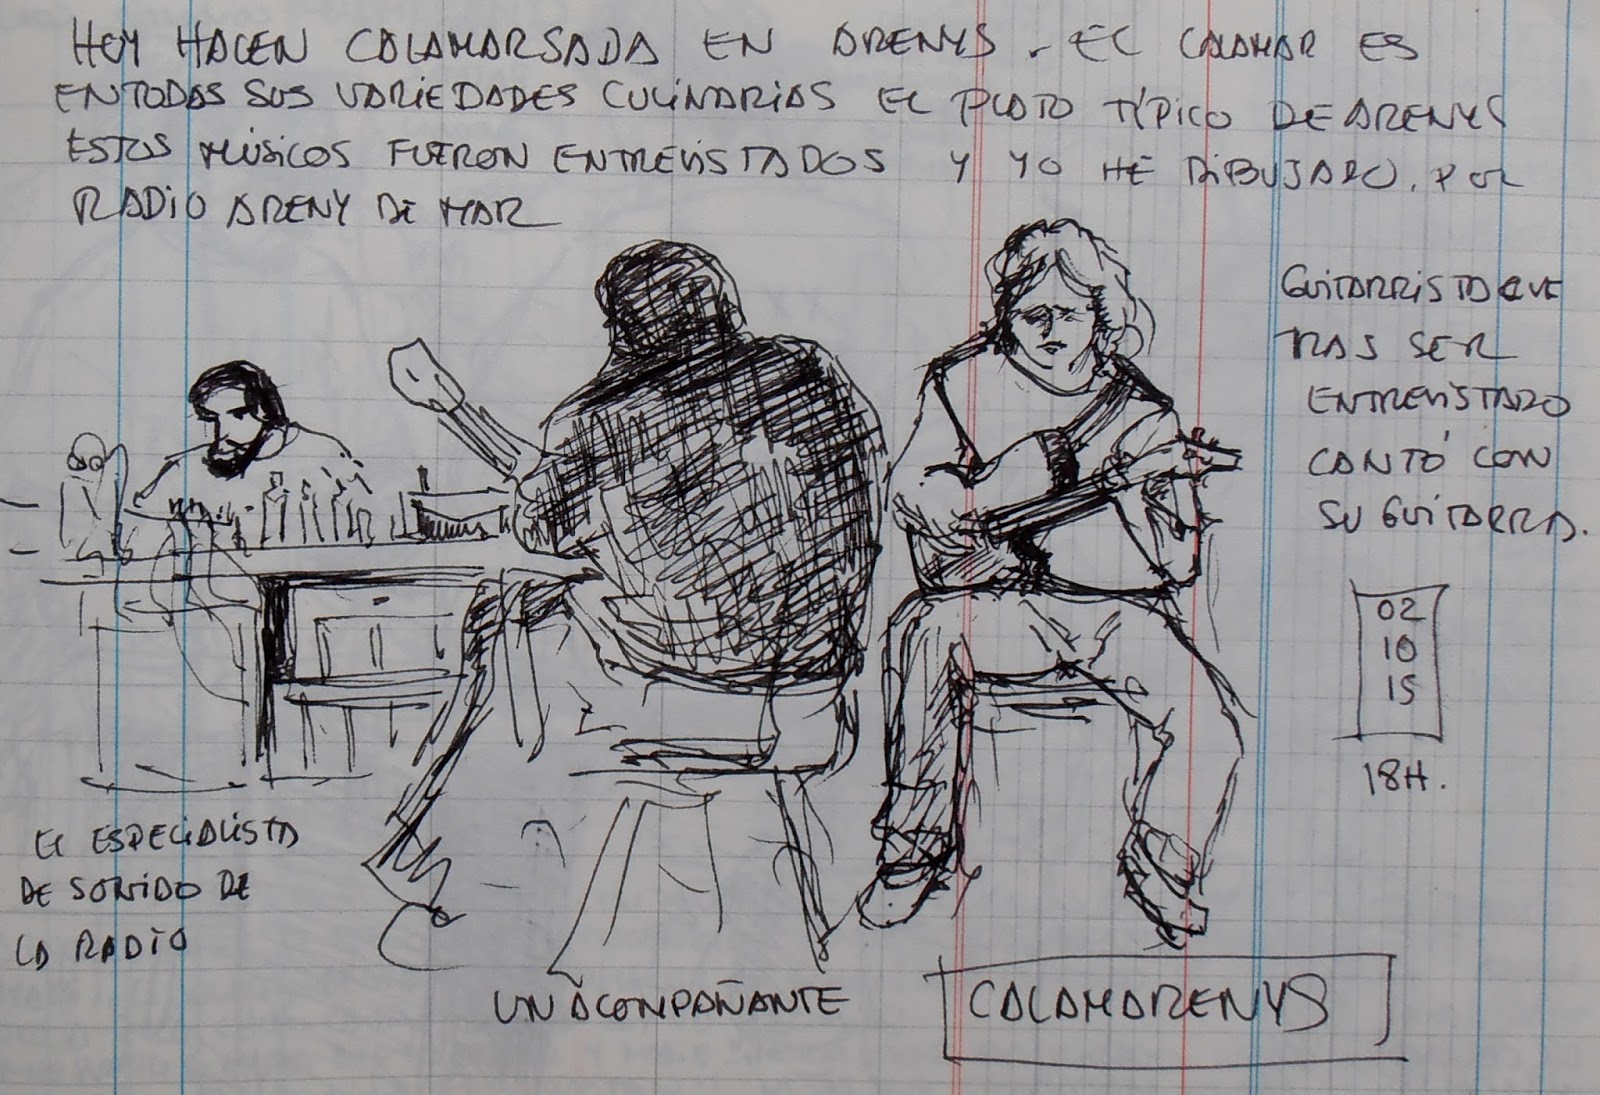 HOY HACEN CALAMARSADA EN ARENYS. EL CALAMAR ES
EN TODAS SUS VARIEDADES CULINARIAS EL PLATO TÍPICO DE ARENYS
ESTOS MÚSICOS FUERON ENTREVISTADOS Y YO HE DIBUJADO. POR
RADIO ARENY DE MAR
GUITARRISTA QUE
TRAS SER
ENTREVISTADO
CANTÓ CON
SU GUITARRA.
02
10
15
18H.
EL ESPECIALISTA
DE SONIDO DE
LA RADIO
UN ACOMPAÑANTE
CALAMARENYS